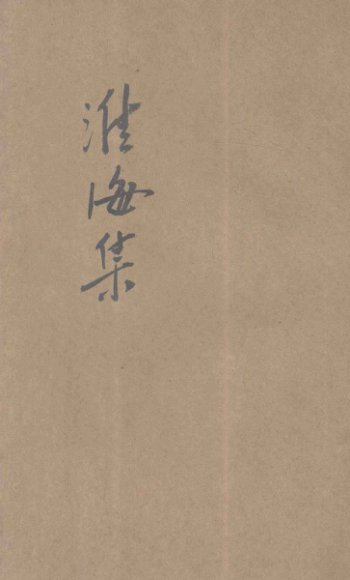 淮海集